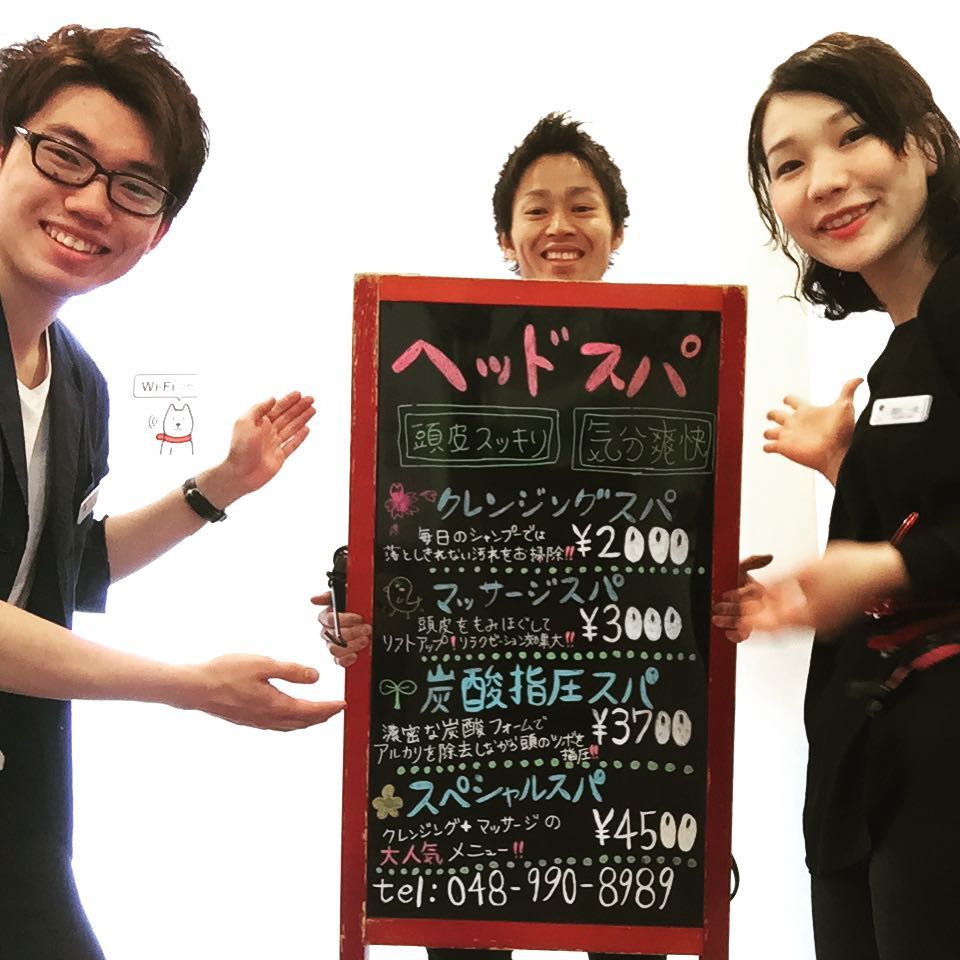 Wi-Fi
ヘッドスパ
頭皮スッキリ 気分爽快
クレンジングスパ
毎日のシャンプーでは
落としきれない汚れをお掃除!! ¥2000
マッサージスパ
頭皮をもみほぐして
リフトアップ!リラクゼーション効果大!! ¥3000
炭酸指圧スパ
濃密な炭酸フォームで
アルカリを除去しながら頭のツボを
指圧!! ¥3700
スペシャルスパ
クレンジング+マッサージの
大人気メニュー!! ¥4500
tel:048-990-8989